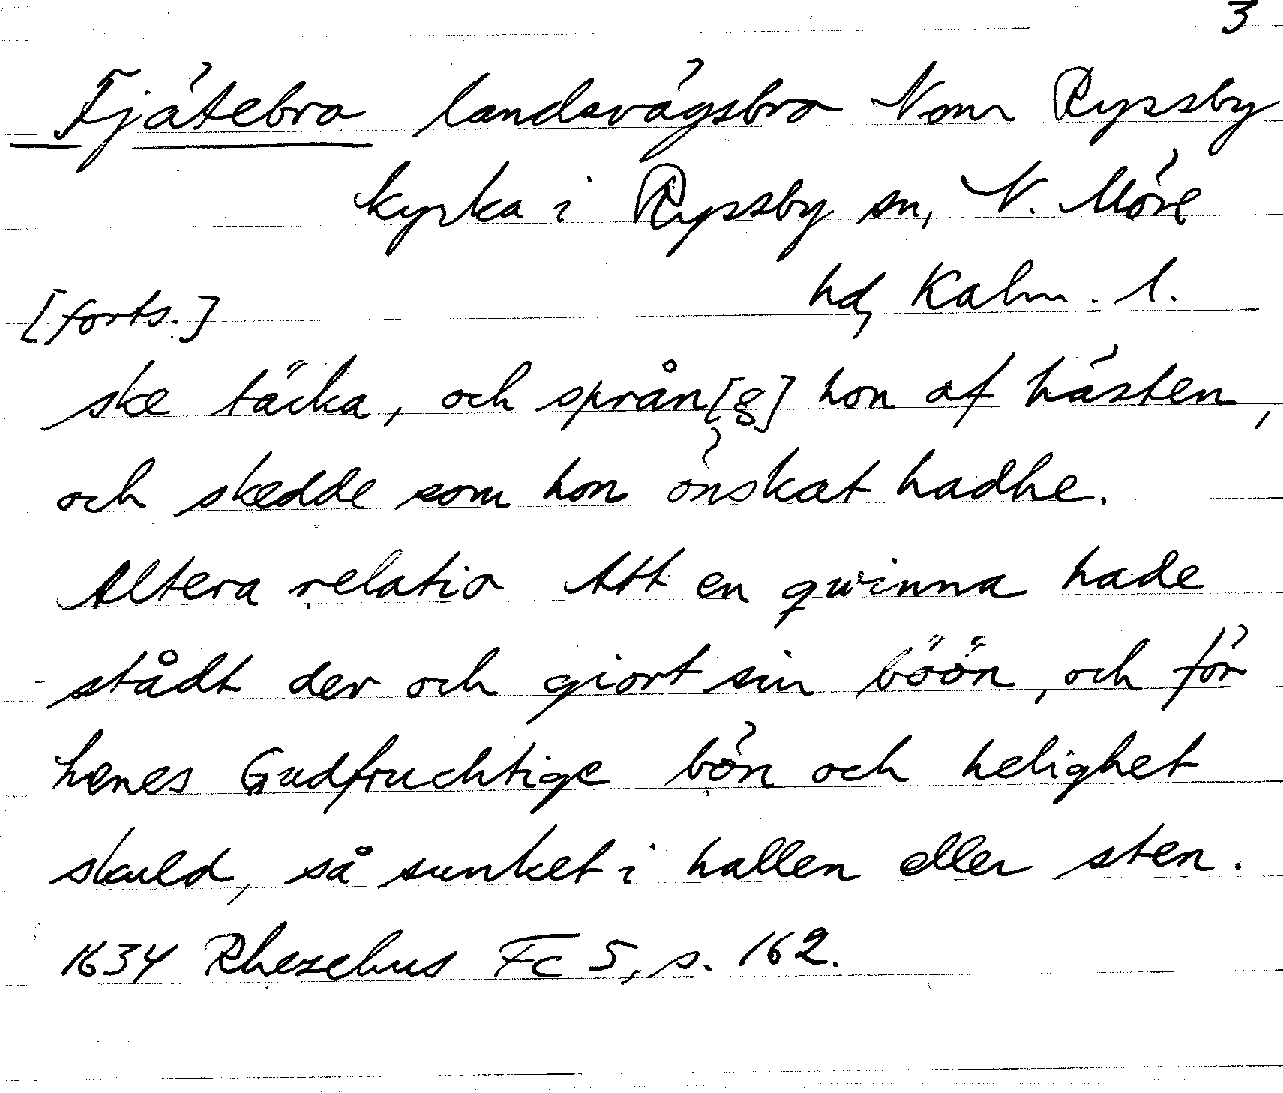 3
Fjätebro landsvägsbro Nom Ryssby
kyrka i Ryssby sn, N. Möre
hd, Kalm. l.
[forts.]
ske täcka, och språn[g] hon af hästen,
och skedde som hon önskat hadhe.
Altera relatio Att en qwinna hade
stådt der och giort sin böön, och för
henes Gudfruchtige bön och helighet
skuld, så sunket i hallen eller sten.
1634 Rhezelius Fc 5, s. 162.